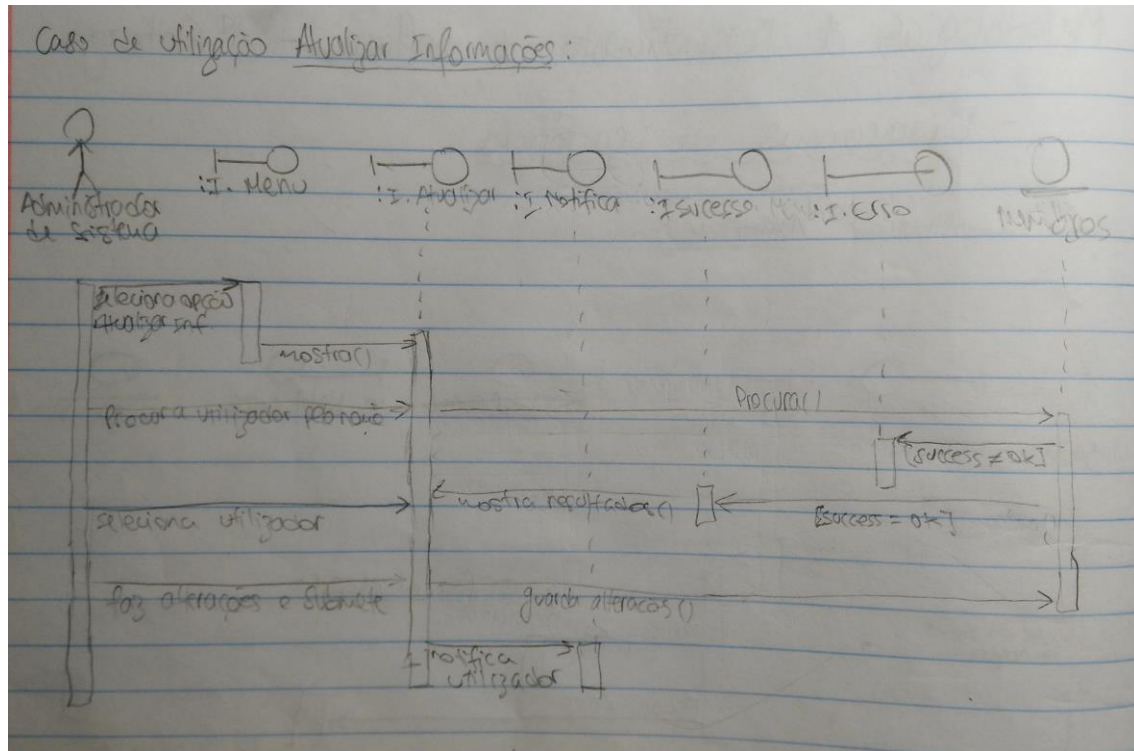 Caso de utilização Atualizar Informações:
Administrador
de sistema
:I. Menu
:I. Atualizar
:I. Notifica
:I sucesso
:I. Erro
seleciona opção
Atualizar Inf.
mostra()
Procura utilizador pelo
Procura()
[success ≠ ok]
mostra resultados()
[success = ok]
seleciona utilizador
faz alterações e submete
guarda alteracos()
notifica
utilizador